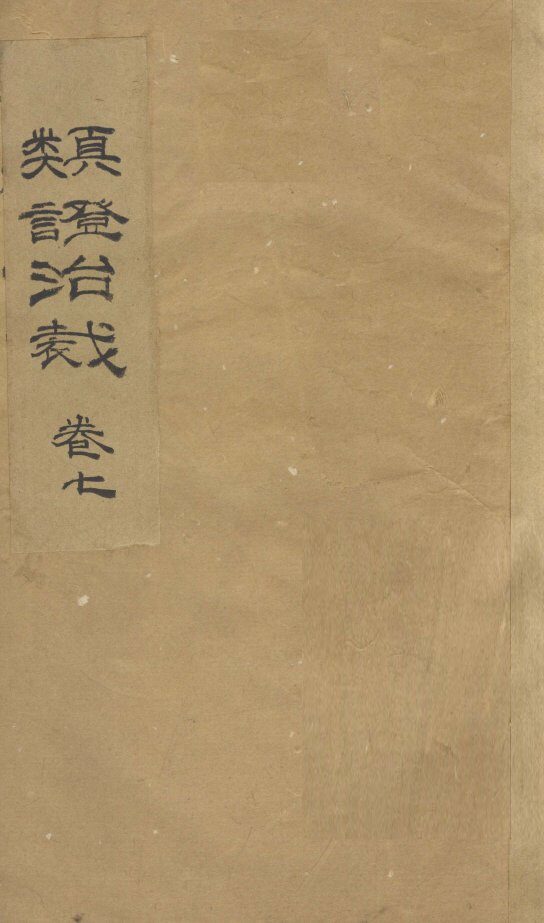 類證治裁
卷七